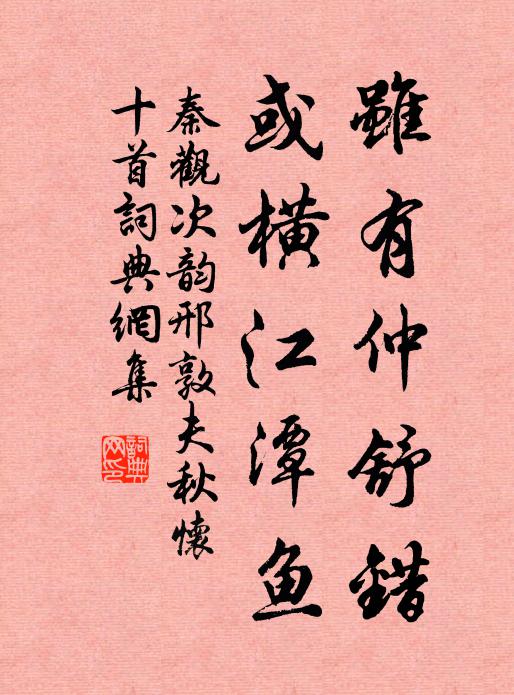 雖有仲舒錯
或橫江潭鱼
秦觀次韵邢敦夫秋懷
十首詞典網集
詞典
网印